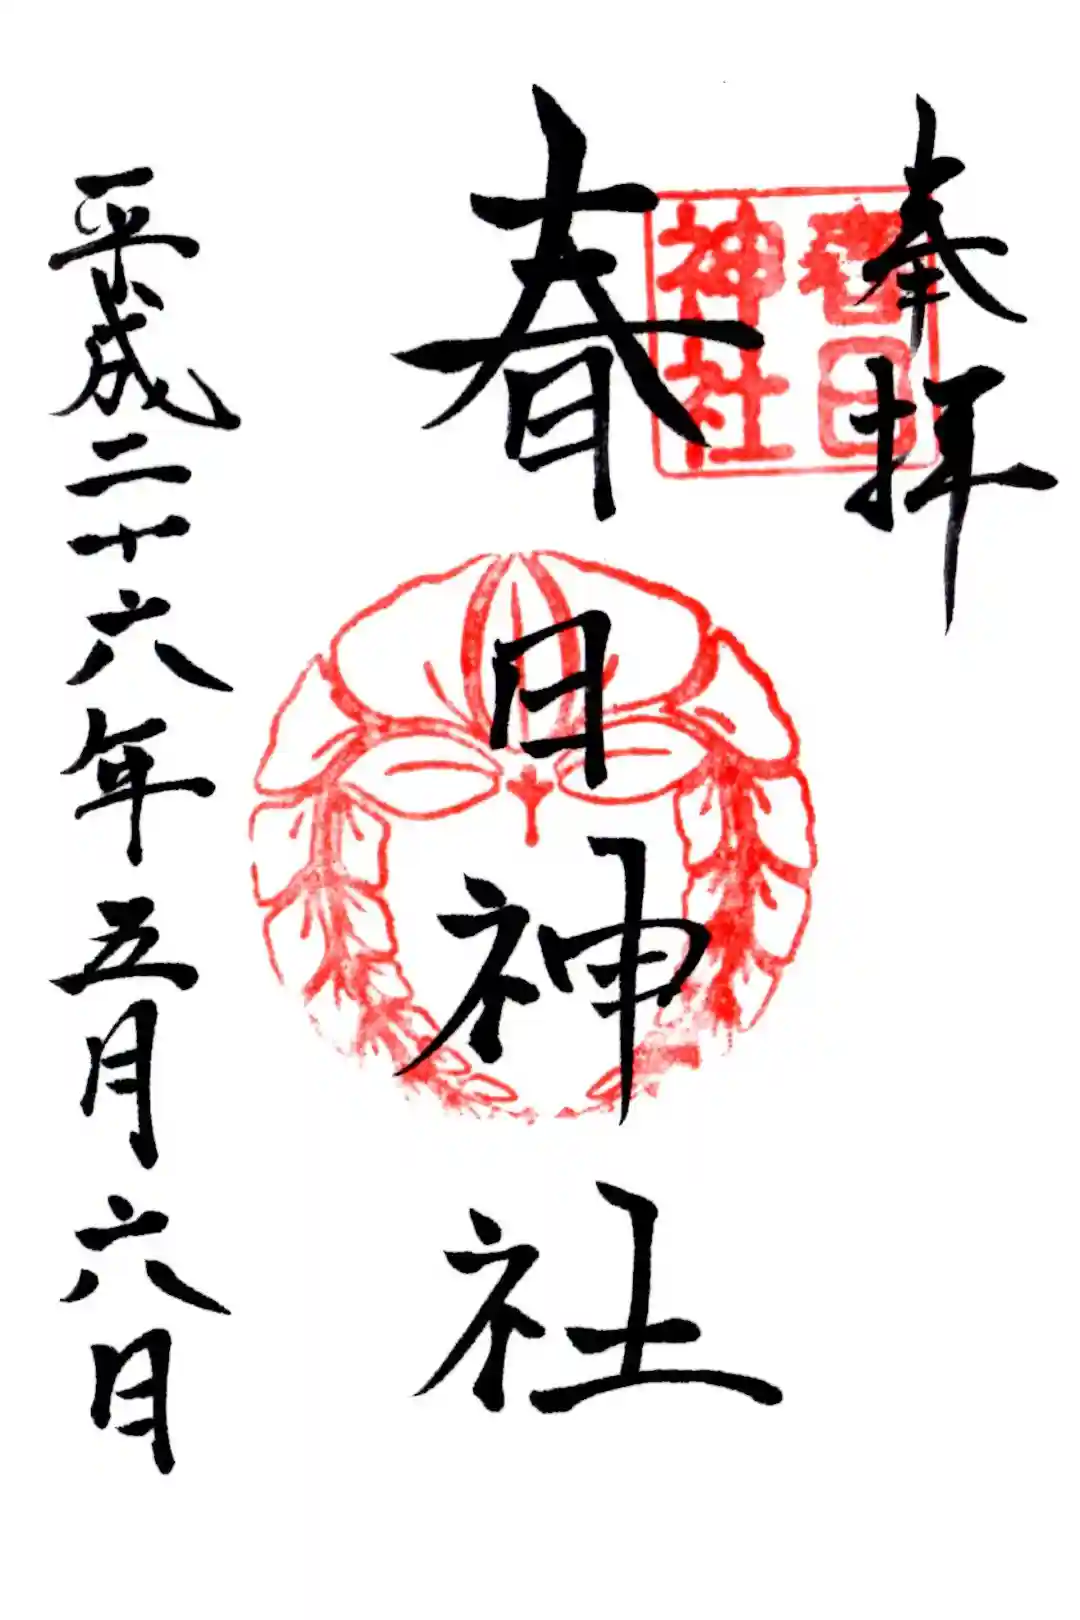 奉拝
春日神社
春日神社
平成二十六年五月六日